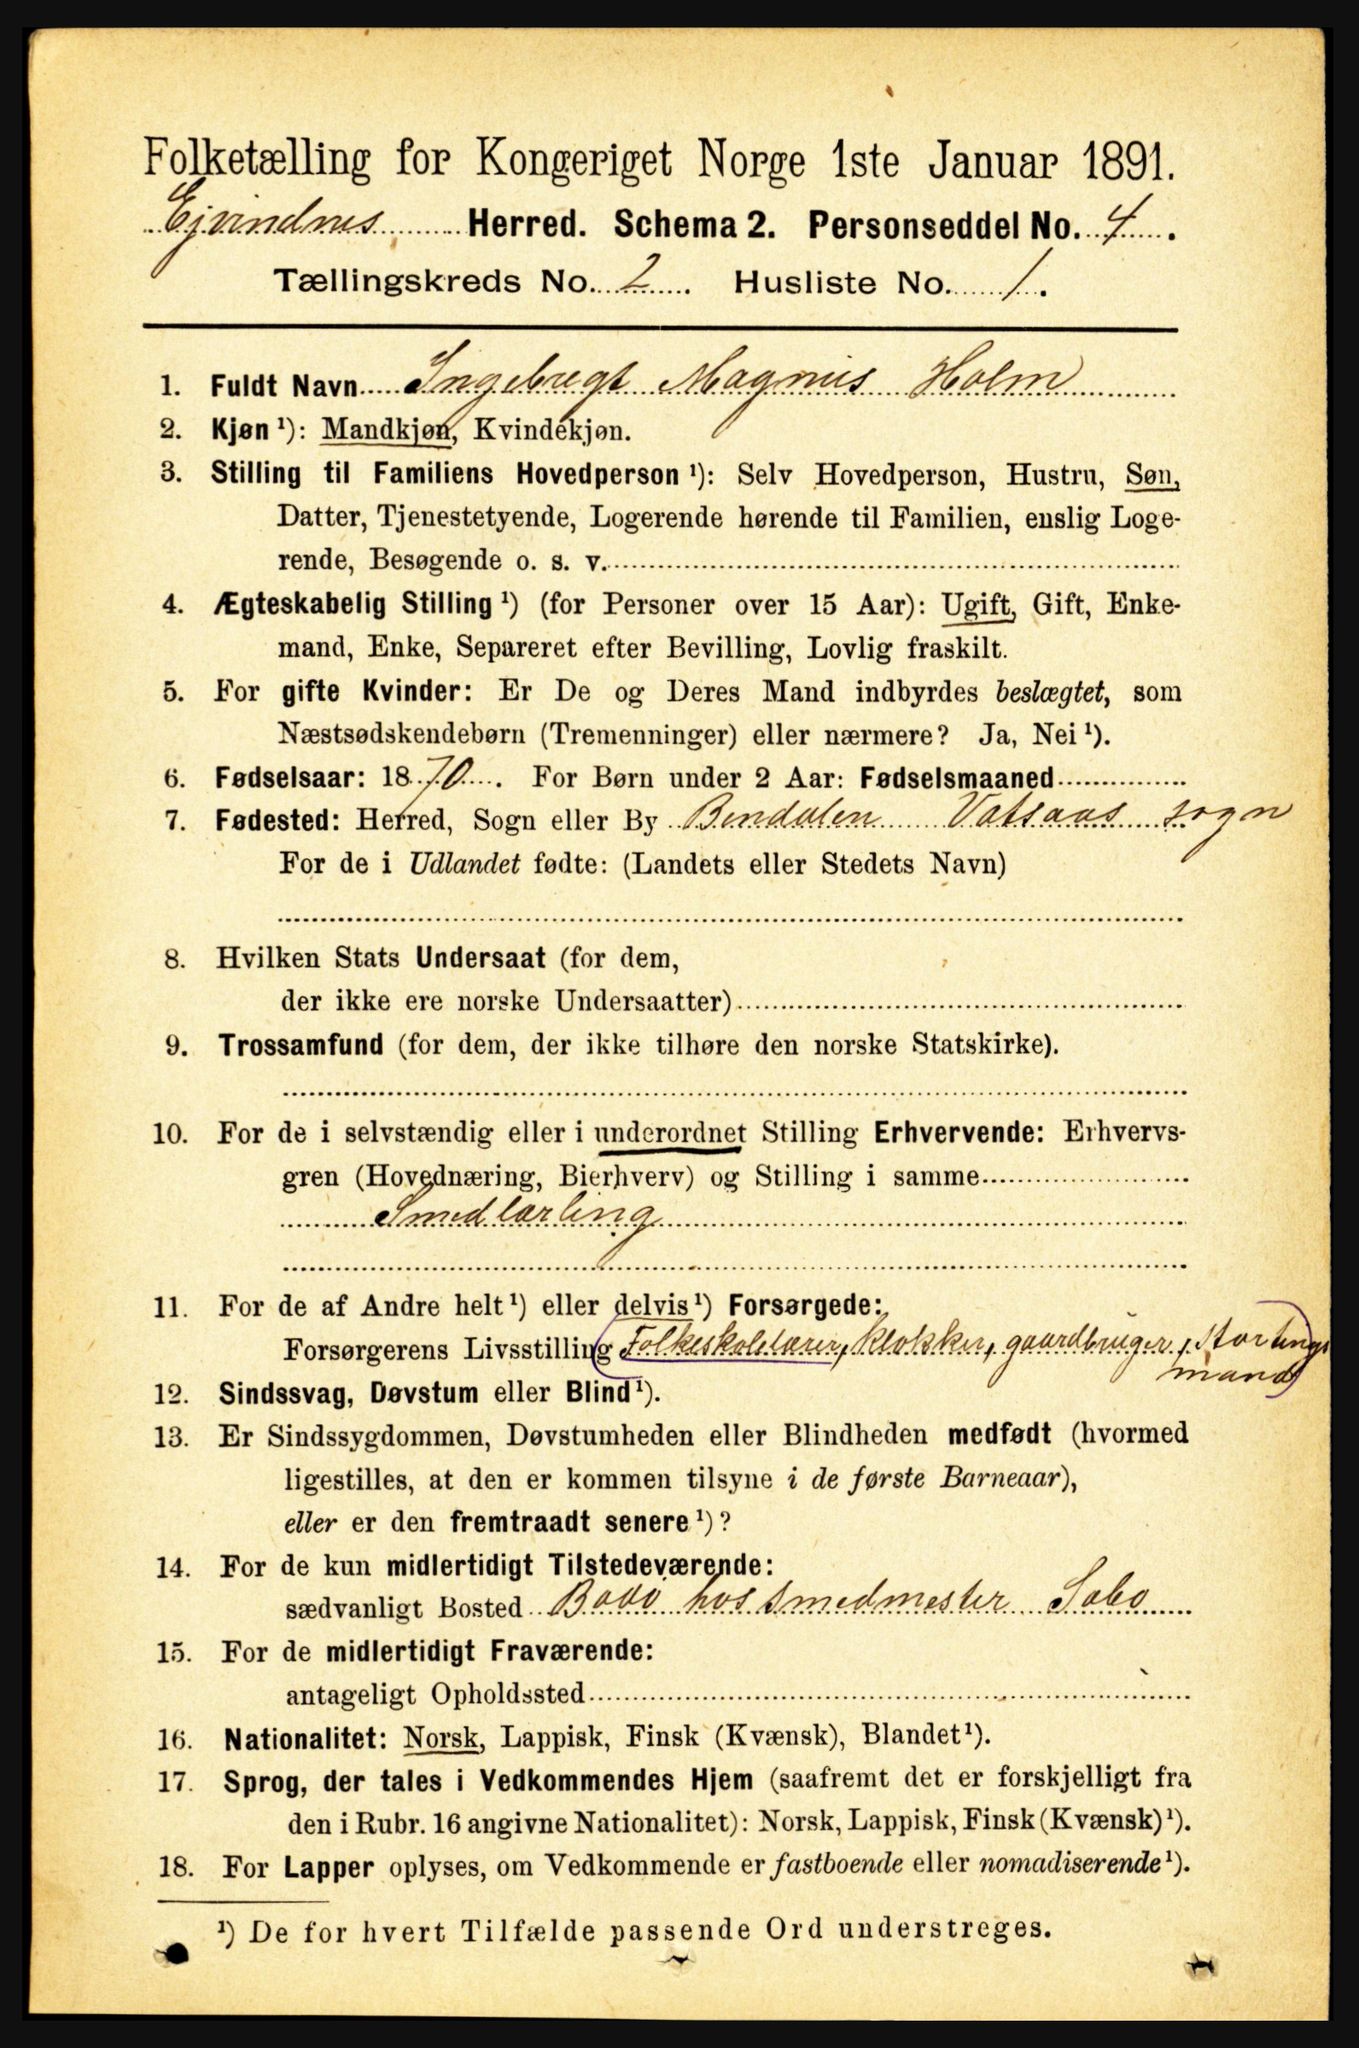 Folketælling for Kongeriget Norge 1ste Januar 1891.
Ejvindnes Herred. Schema 2. Personseddel No. 4.
Tællingskreds No. 2. Husliste No. 1.
1. Fuldt Navn Ingebregt Magnus Holm
2. Kjøn ¹): Mandkjøn, Kvindekjøn.
3. Stilling til Familiens Hovedperson ¹): Selv Hovedperson, Hustru, Søn,
Datter, Tjenestetyende, Logerende hørende til Familien, enslig Loge-
rende, Besøgende o. s. v.
4. Ægteskabelig Stilling ¹) (for Personer over 15 Aar): Ugift, Gift, Enke-
mand, Enke, Separeret efter Bevilling, Lovlig fraskilt.
5. For gifte Kvinder: Er De og Deres Mand indbyrdes beslægtet, som
Næstsødskendebørn (Tremenninger) eller nærmere? Ja, Nei ¹).
6. Fødselsaar: 1870. For Børn under 2 Aar: Fødselsmaaned
7. Fødested: Herred, Sogn eller By Bindalen Vatsaas sogn
For de i Udlandet fødte: (Landets eller Stedets Navn)
8. Hvilken Stats Undersaat (for dem,
der ikke ere norske Undersaatter)
9. Trossamfund (for dem, der ikke tilhøre den norske Statskirke).
10. For de i selvstændig eller i underordnet Stilling Erhvervende: Erhvervs-
gren (Hovednæring, Bierhverv) og Stilling i samme
Smedlærling
11. For de af Andre helt ¹) eller delvis ¹) Forsørgede:
Forsørgerens Livsstilling Folkeskolelærer, klokker, gaardbruger, Stortings
mand
12. Sindssvag, Døvstum eller Blind ¹).
13. Er Sindssygdommen, Døvstumheden eller Blindheden medfødt (hvormed
ligestilles, at den er kommen tilsyne i de første Barneaar),
eller er den fremtraadt senere ¹)?
14. For de kun midlertidigt Tilstedeværende:
sædvanligt Bosted Bodø hos smedmester Sabo
15. For de midlertidigt Fraværende:
antageligt Opholdssted
16. Nationalitet: Norsk, Lappisk, Finsk (Kvænsk), Blandet ¹).
17. Sprog, der tales i Vedkommendes Hjem (saafremt det er forskjelligt fra
den i Rubr. 16 angivne Nationalitet): Norsk, Lappisk, Finsk (Kvænsk) ¹).
18. For Lapper oplyses, om Vedkommende er fastboende eller nomadiserende ¹).
¹) De for hvert Tilfælde passende Ord understreges.